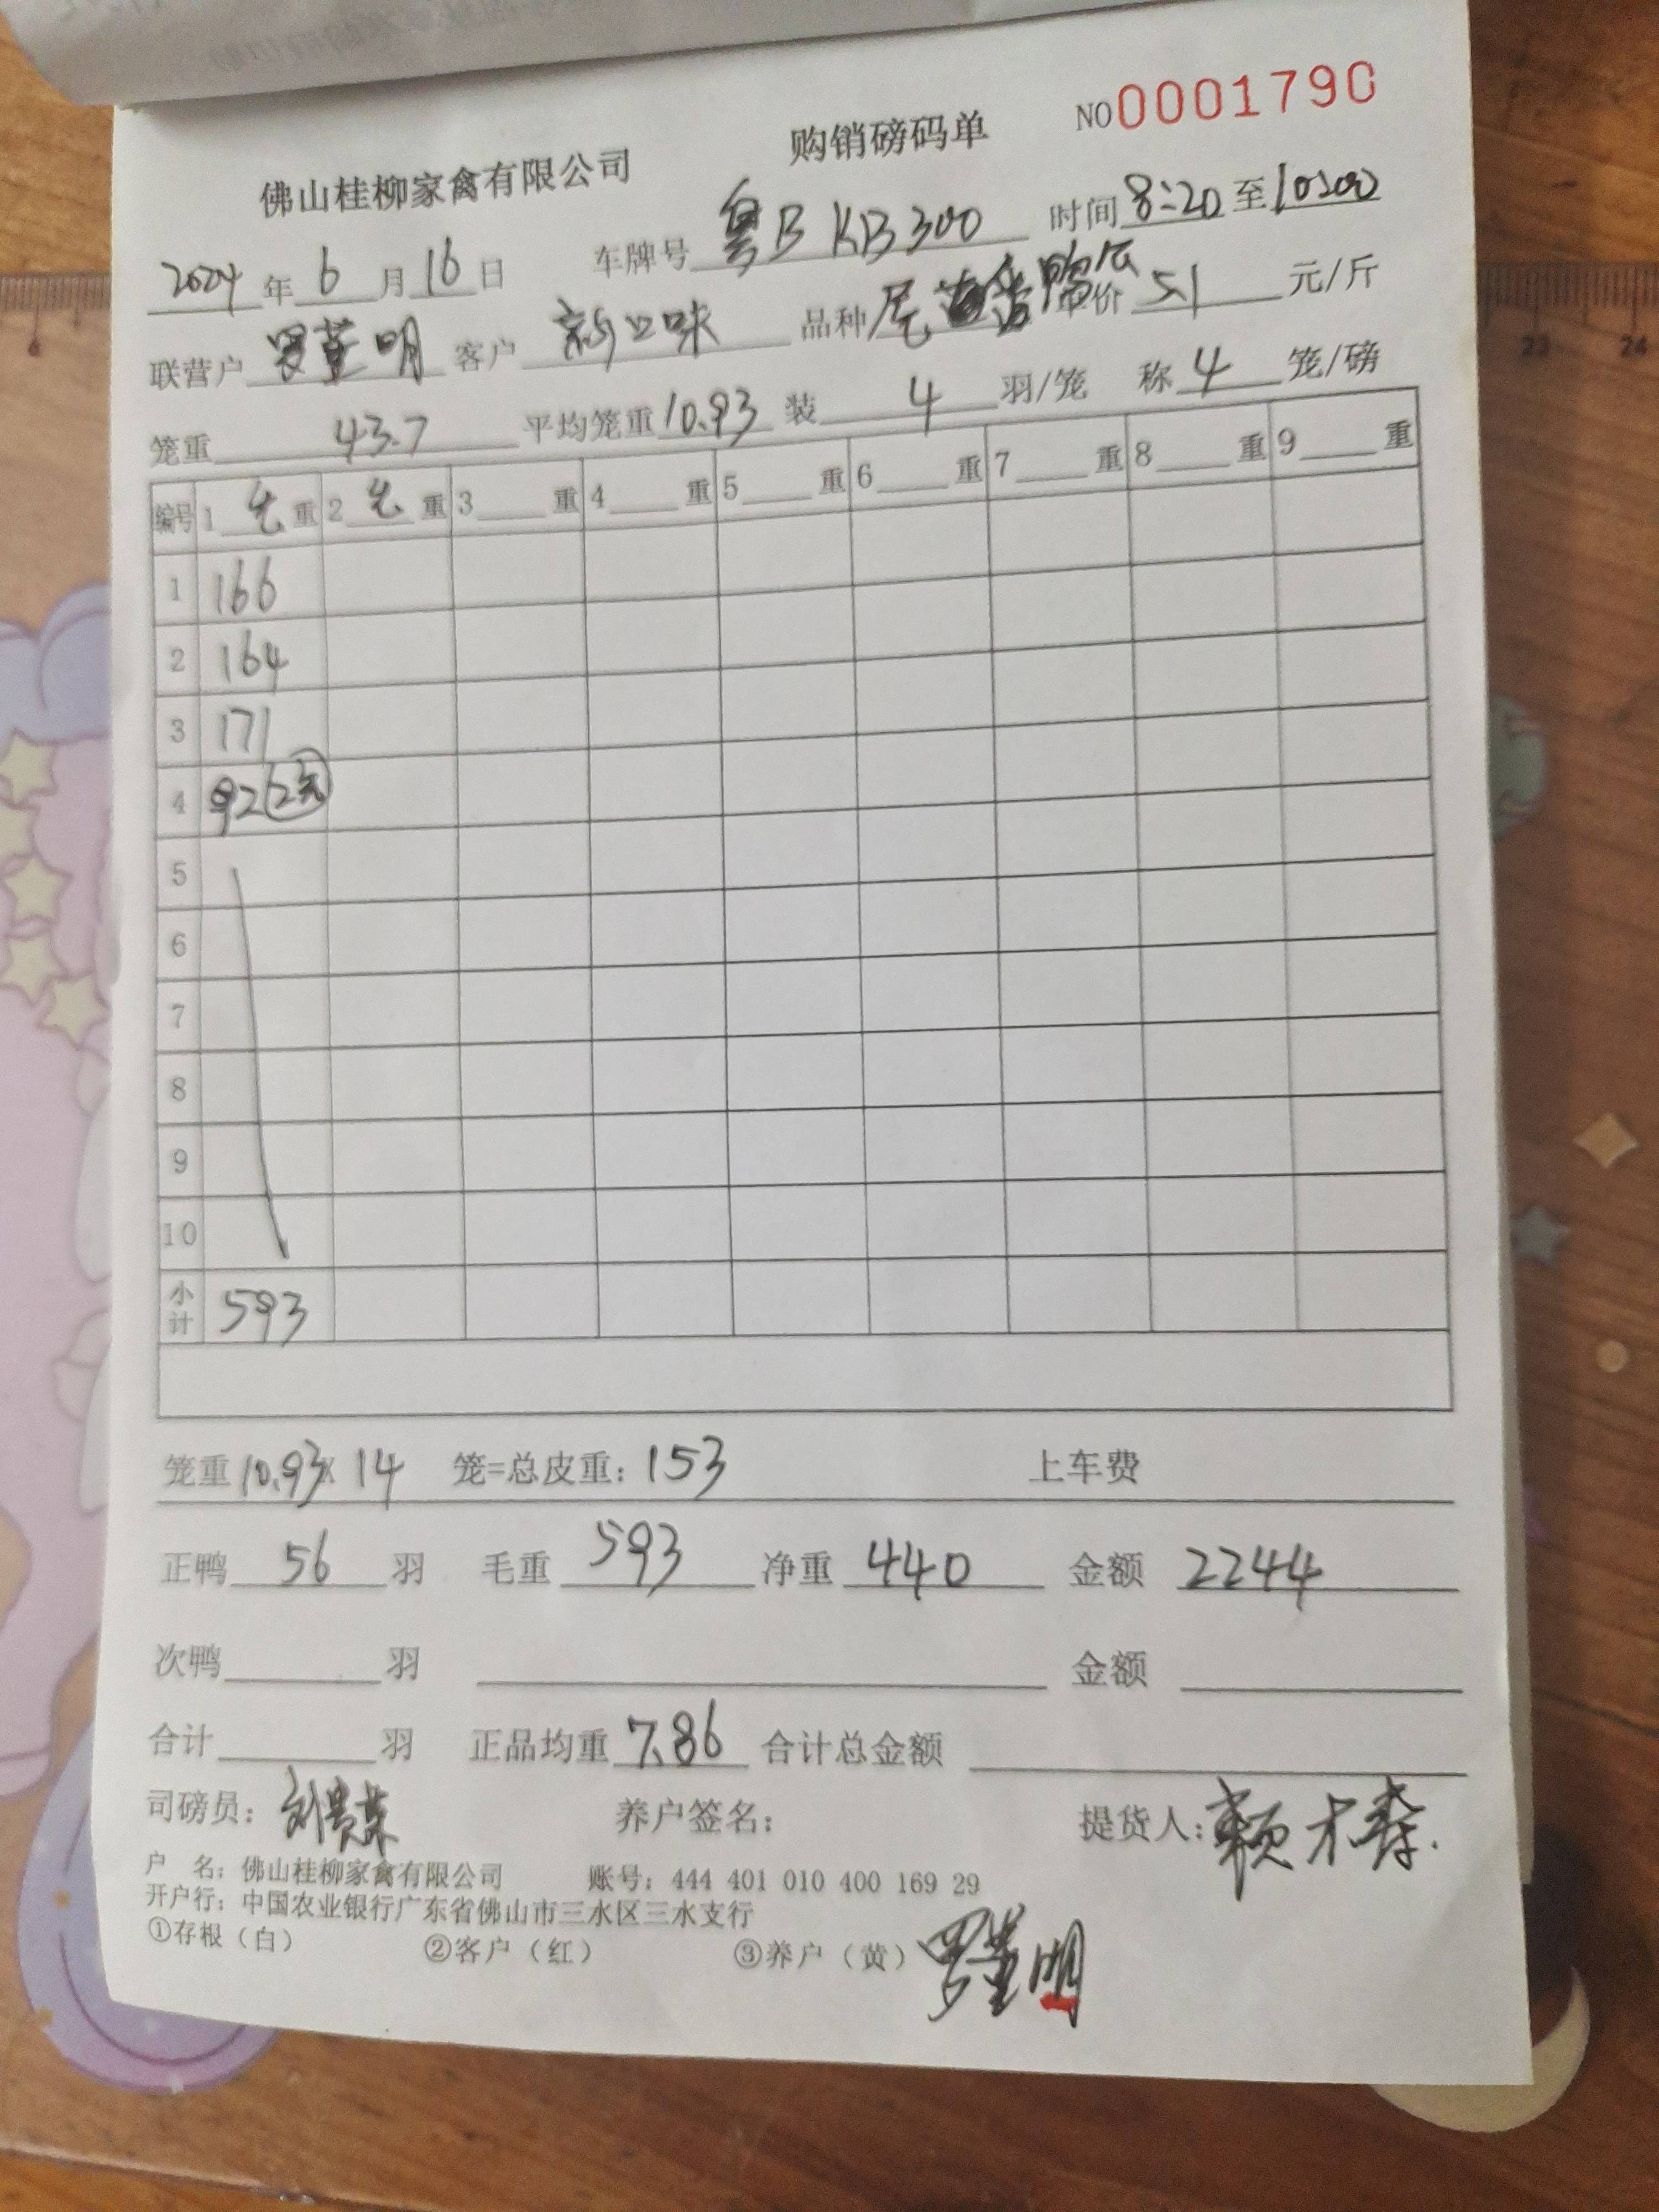 购销磅码单 NO0001790
佛山桂柳家禽有限公司
2024年6月16日 车牌号 粤B KB300 时间 8:20 至 10:00
联营户 罗董明 客户 新口味 品种 单价 5.1 元/斤
笼重 43.7 平均笼重 10.93 装 4 羽/笼 称 4 笼/磅
编号 1 毛 重 2 毛 重 3 重 4 重 5 重 6 重 7 重 8 重 9 重
1 166
2 164
3 171
4 92
5
6
7
8
9
10
小计 593
笼重 10.93 x 14 笼=总皮重: 153 上车费
正鸭 56 羽 毛重 593 净重 440 金额 2244
次鸭 羽 金额
合计 羽 正品均重 7.86 合计总金额
司磅员: 养户签名: 提货人:
户 名: 佛山桂柳家禽有限公司 账号: 444 401 010 400 169 29
开户行: 中国农业银行广东省佛山市三水区三水支行
①存根（白） ②客户（红） ③养户（黄） 罗董明